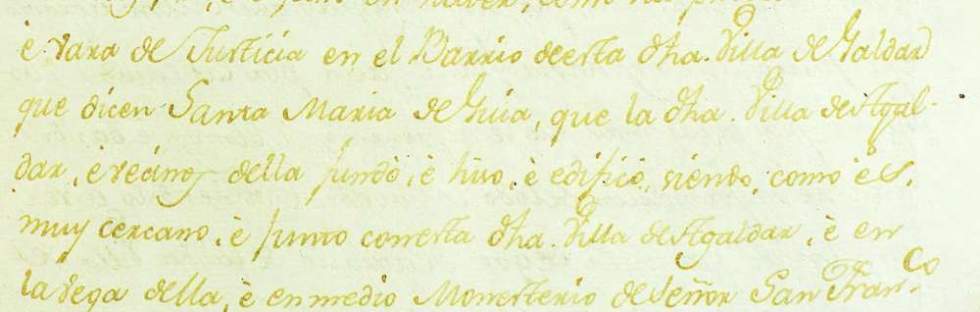 haver, como no
è vara de Justicia en el Barrio deesta dha. Villa de Galdar
que dicen Santa Maria de Guia, que la dha. Villa de Agal-
dar, è vecinos della fundò, è hiso, è edificò, siendo, como es,
muy cercano, è junto conesta dha. Villa de Agaldar, è en
la Vega della, è enmedio Monesterio de Señor San Fran.co